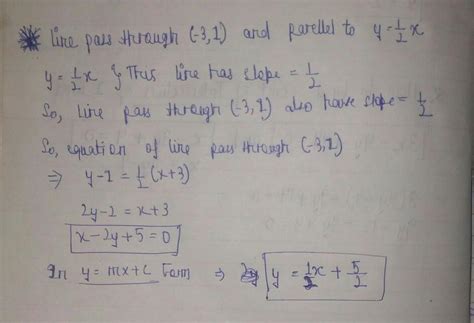 Line pass through (-3,1) and parellel to y=1/2x
y = 1/2x } Thus line has slope = 1/2
So, line pass through (-3,1) also have slope = 1/2
So, equation of line pass through (-3,1)
⇒ y-1 = 1/2(x+3)
2y-2 = x+3
x-2y+5=0
In y=mx+c Form ⇒ y = 1/2x + 5/2